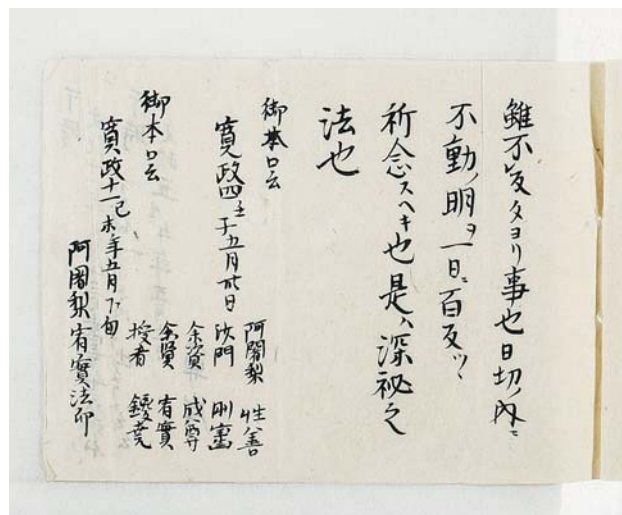 雖不及タヨリ事也日切ノ内ニ
不動ノ明ヲ一日ニ百反ツヽ
祈念スヘキ也是ハ深秘之
法也
御本口云
寛政四壬子五月廿日
阿闍梨 性善
沙門 剛蜜
成尊
有實
授者
御本口云
寛政十一己未年五月下旬
阿闍梨宥實法印